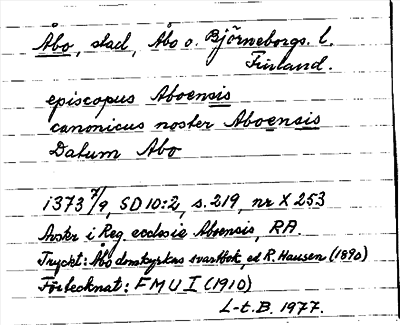 Åbo, stad, Åbo o. Björneborgs. l.
Finland.
episcopus Aboensis
canonicus noster Aboensis
Datum Abo
1373 7/9, SD 10:2, s. 219, nr X 253
Avskr i Reg. ecclesie Aboensis, RA.
Tryckt: Åbo domkyrkas svartbok, ed R. Hausen (1890)
Förtecknat: FMU I (1910)
L-t. B. 1977.